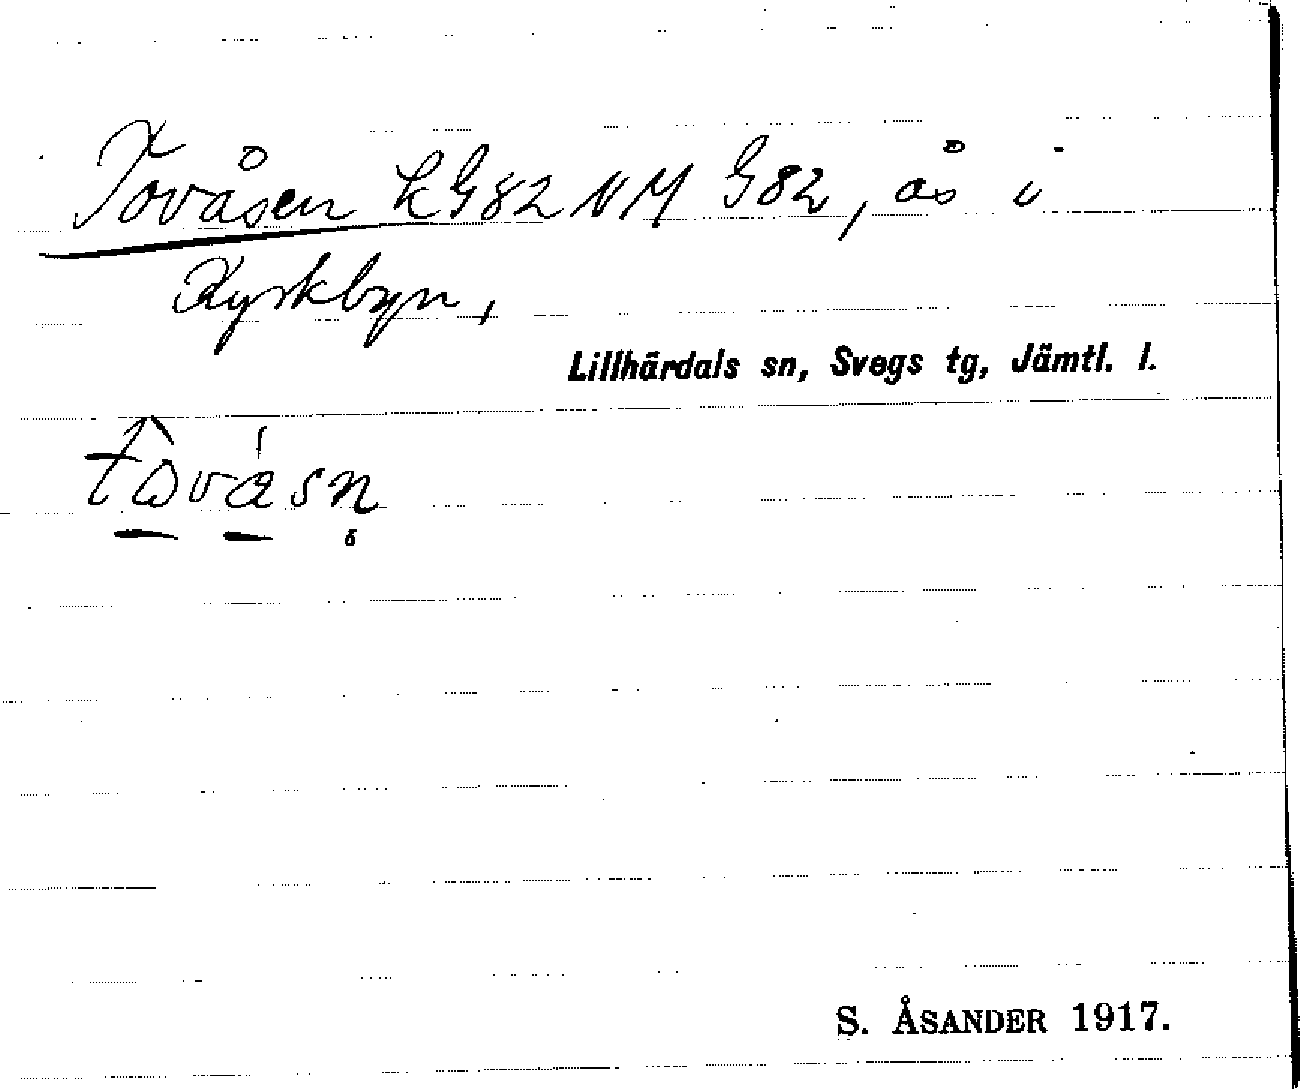 Tovåsen k G82 NM G82, ås i
Kyrkbyn,
Lillhärdals sn, Svegs tg, Jämtl. l.
S. ÅSANDER 1917.